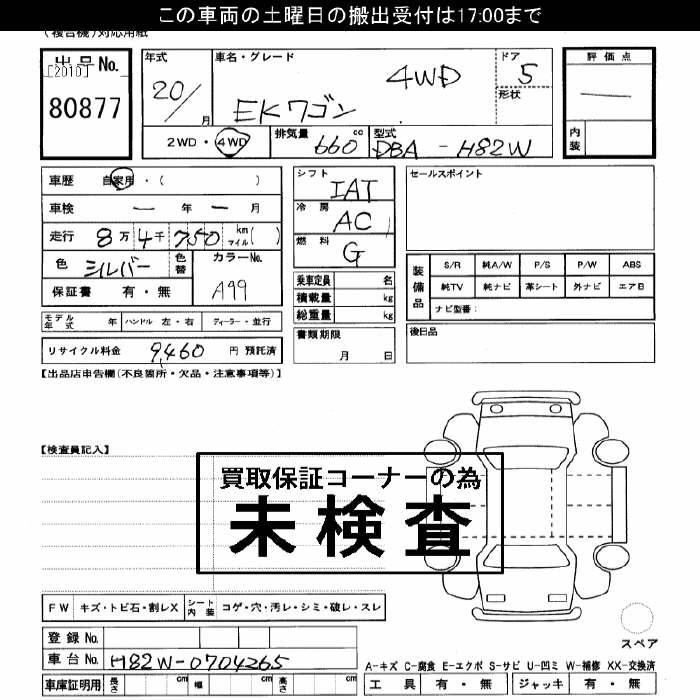 この車両の土曜日の搬出受付は17:00まで
(複合機)対応用紙
出品No.
[2010]
80877
年式
20/
月
車名・グレード
4WD
EKワゴン
ドア
5
形状
2WD・4WD
排気量
660 cc
型式
DBA - H82W
評価点
―
内装
車歴 自家用・( )
車検 ― 年 ― 月
走行 8万4千750 km マイル( )
色 シルバー 色替
カラーNo.
A99
保証書 有・無
モデル年式 年 ハンドル 左・右 ディーラー・並行
リサイクル料金 9,460 円 預託済
シフト
IAT
冷房
AC
燃料
G
乗車定員 名
積載量 kg
総重量 kg
書類期限
月 日
セールスポイント
装備品
S/R 純A/W P/S P/W ABS
純TV 純ナビ 革シート 外ナビ エアB
ナビ型番:
後日品
【出品店申告欄(不良箇所・欠品・注意事項等)】
【検査員記入】
買取保証コーナーの為
未検査
FW キズ・トビ石・割レX シート内装 コゲ・穴・汚レ・シミ・破レ・スレ
登録No.
車台No. H82W-0704265
車庫証明用 長さ cm 幅 cm 高さ cm
スペア
A-キズ C-腐食 E-エクボ S-サビ U-凹ミ W-補修 XX-交換済
工具 有・無 ジャッキ 有・無